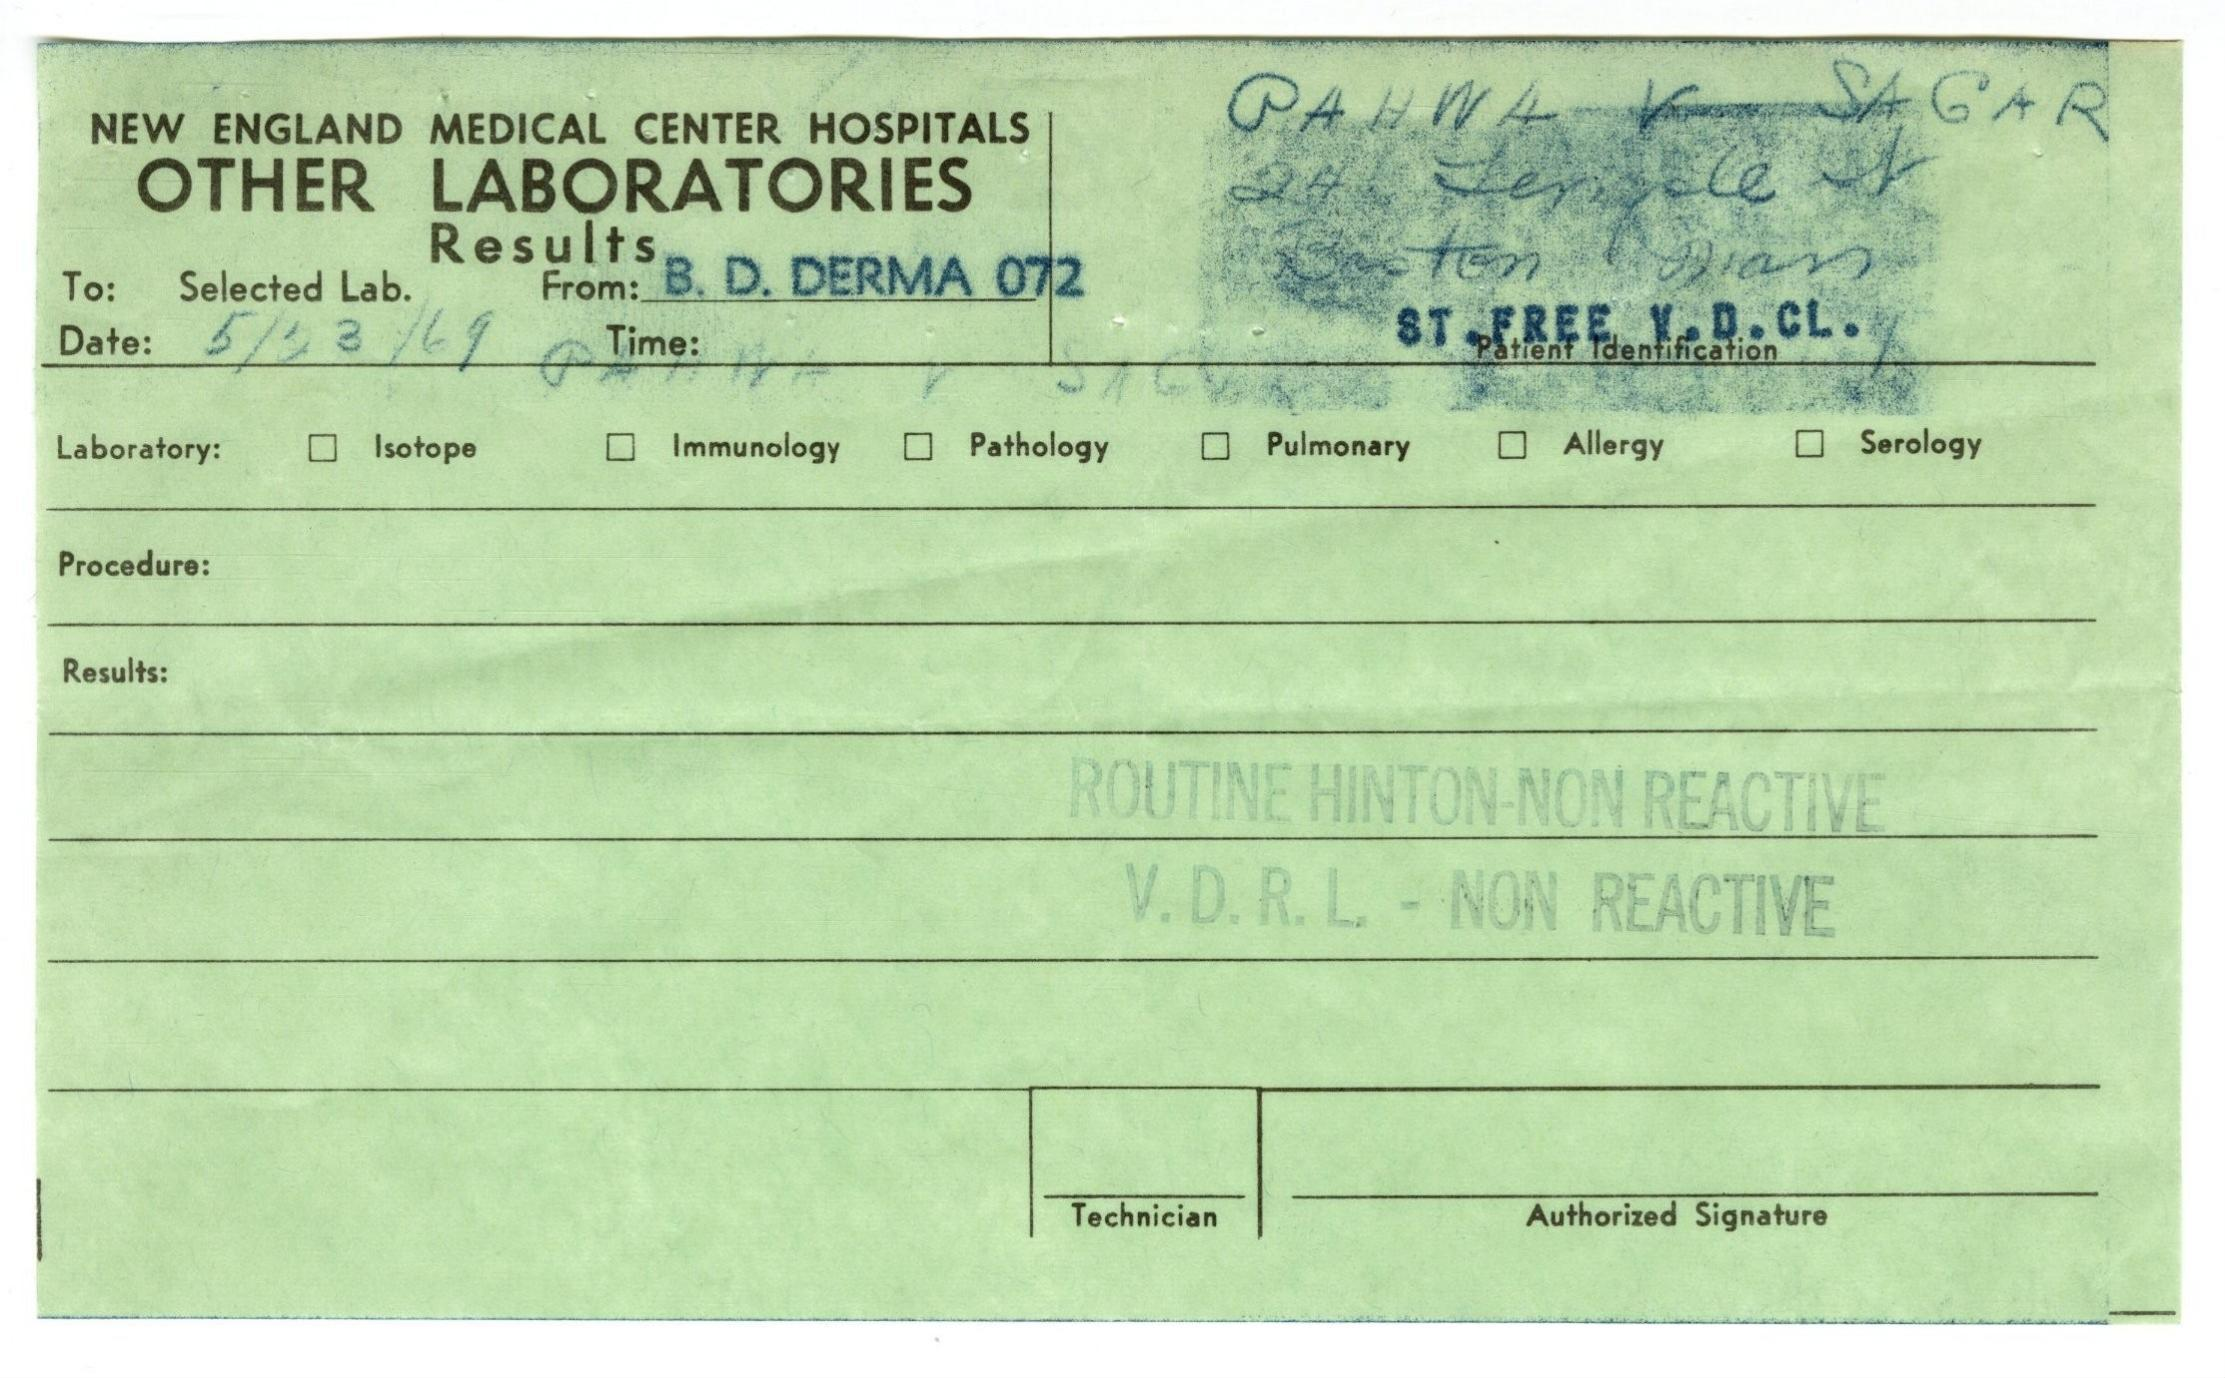 NEW ENGLAND MEDICAL CENTER HOSPITALS
OTHER LABORATORIES
Results
To: Selected Lab. From: B. D. DERMA 072
Date: 5/23/69 Time:
PAHWA V SAGAR
24 Temple St
Boston Mass
ST.FREE V.D.CL.
Patient Identification
PAHWA V SAG
Laboratory: ☐ Isotope ☐ Immunology ☐ Pathology ☐ Pulmonary ☐ Allergy ☐ Serology
Procedure:
Results:
ROUTINE HINTON-NON REACTIVE
V. D. R. L. - NON REACTIVE
Technician
Authorized Signature